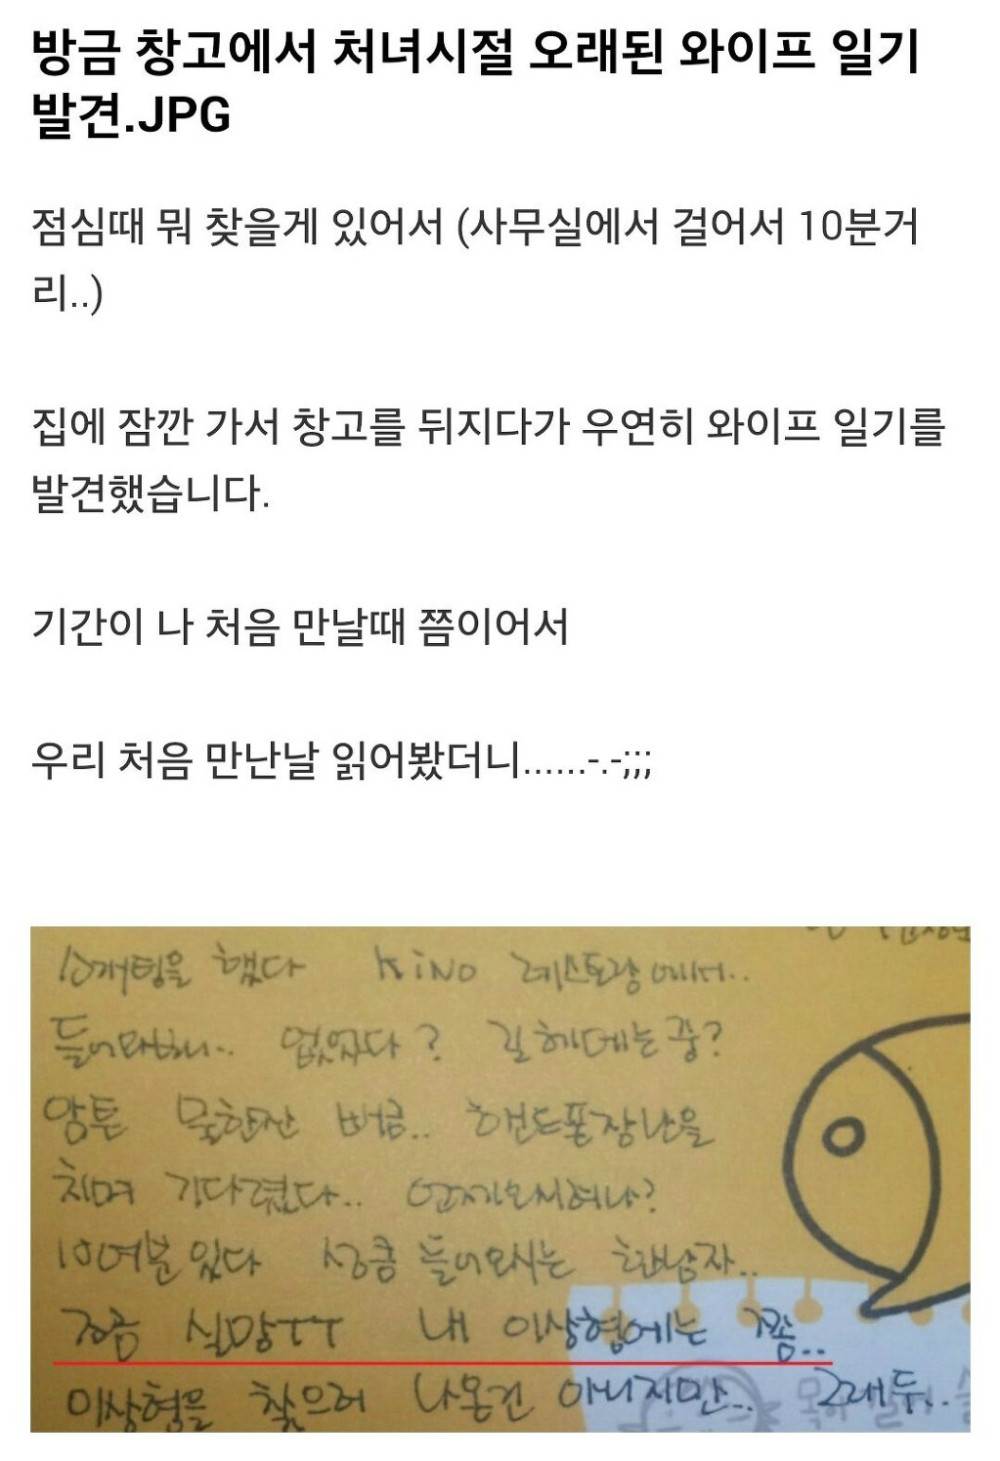 방금 창고에서 처녀시절 오래된 와이프 일기
발견.JPG
점심때 뭐 찾을게 있어서 (사무실에서 걸어서 10분거
리..)
집에 잠깐 가서 창고를 뒤지다가 우연히 와이프 일기를
발견했습니다.
기간이 나 처음 만날때 쯤이어서
우리 처음 만난날 읽어봤더니......-.-;;;
소개팅을 했다 KiNO 레스토랑에서..
들어와보니.. 없었다? 길 헤메는중?
암튼 물한잔 벌컥.. 핸드폰장난을
치며 기다렸다.. 언제오시려나?
10여분 있다 성큼 들어오시는 한남자..
조금 실망ㅜㅜ 내 이상형에는 쫌..
이상형을 찾으러 나온건 아니지만.. 그래두..